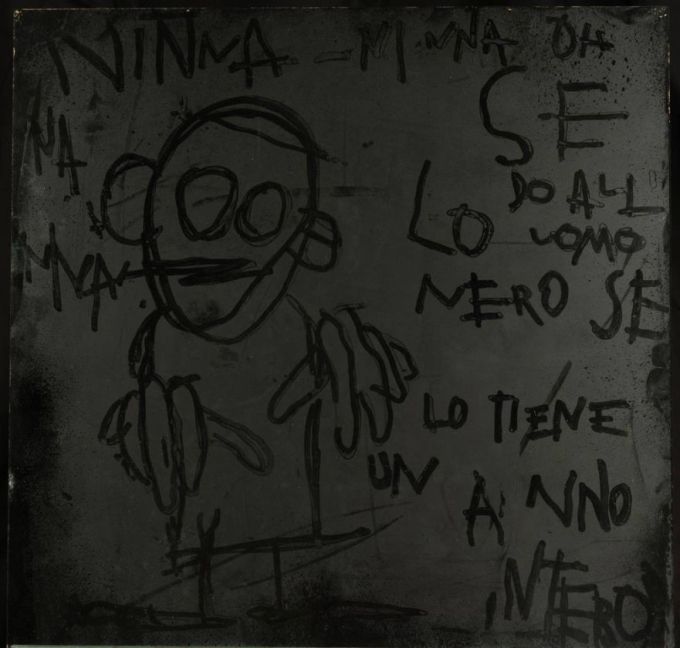 NINNA - NINNA OH
NA
NNA
SE
LO DO ALL
UOMO
NERO SE
LO TIENE
UN ANNO
INTERO